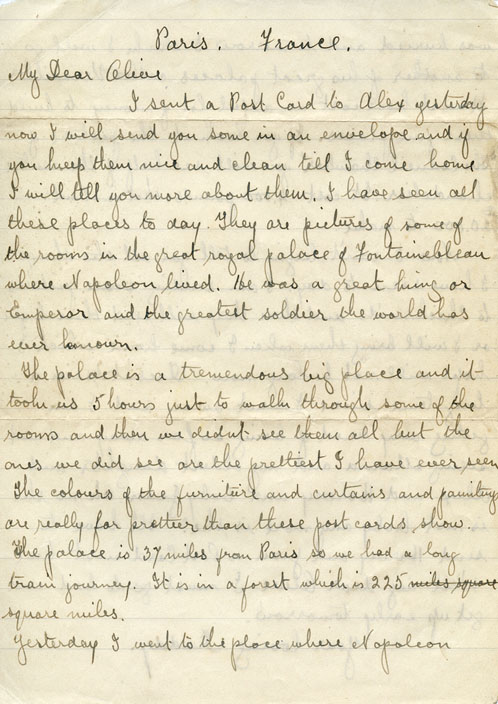 Paris. France.
My Dear Olive
I sent a Post Card to Alex yesterday
now I will send you some in an envelope and if
you keep them nice and clean till I come home
I will tell you more about them. I have seen all
these places to day. They are pictures of some of
the rooms in the great royal palace of Fontainebleau
where Napoleon lived. He was a great king or
Emperor and the greatest soldier the world has
ever known.
The palace is a tremendous big place and it
took us 5 hours just to walk through some of the
rooms and then we didnt see them all but the
ones we did see are the prettiest I have ever seen
The colours of the furniture and curtains and paintings
are really far prettier than these post cards show.
The palace is 37 miles from Paris so we had a long
train journey. It is in a forest which is 225 miles square
square miles.
Yesterday I went to the place where Napoleon